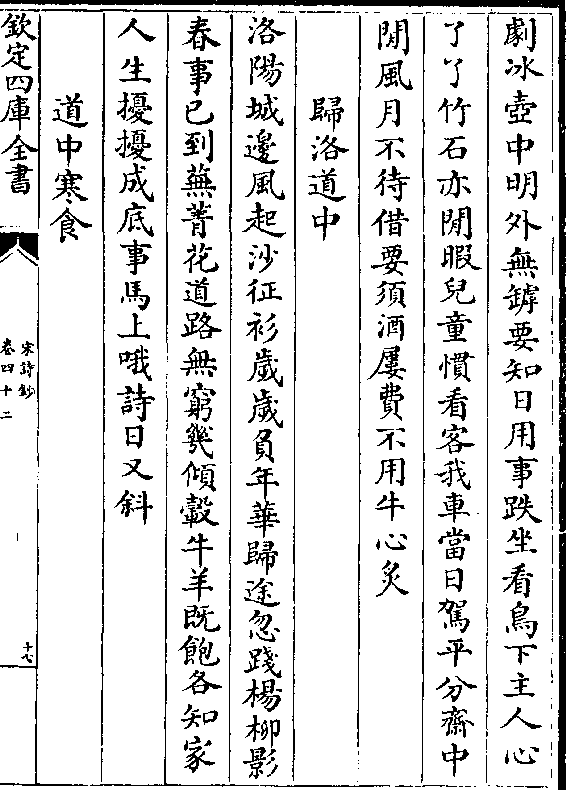 劇冰壺中明外無罅要知日用事趺坐看鳥下主人心
了了竹石亦閒暇兒童慣看客我車當日駕平分齋中
閒風月不待借要須酒屢費不用牛心炙
歸洛道中
洛陽城邊風起沙征衫歲歲負年華歸途忽踐楊柳影
春事已到蕪菁花道路無窮幾傾轂牛羊旣飽各知家
人生擾擾成底事馬上哦詩日又斜
道中寒食
欽定四庫全書
宋詩鈔
卷四十二
十七